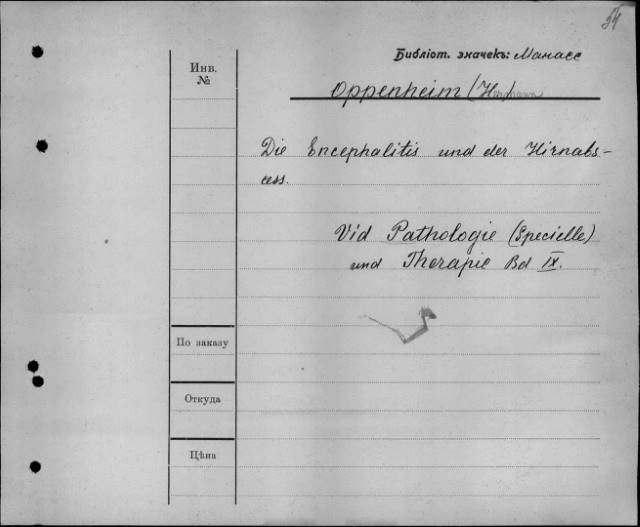 54
Библіот. значекъ: Манасс
Инв.
№
Oppenheim (Hermann
Die Encephalitis und der Hirnabs-
cess.
Vid Pathologie (Specielle)
und Therapie Bd IX.
По заказу
Откуда
Цѣна